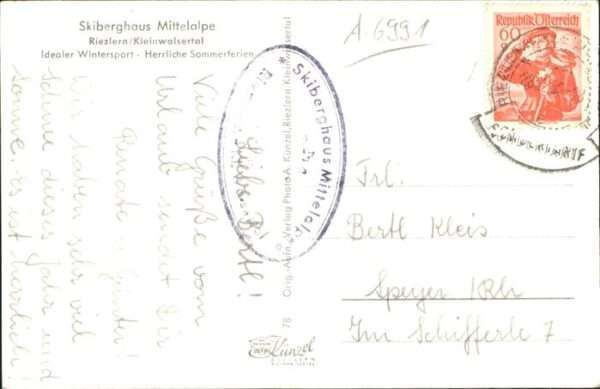 Skiberghaus Mittelalpe
Riezlern/Kleinwalsertal
Idealer Wintersport - Herrliche Sommerferien
A.6991
Republik Österreich
60
Skiberghaus Mittelalpe
Liebe Bertl!
Viele Grüße vom
Urlaub sendet Dir
Renate u. Günter!
Wir haben sehr viel
Schnee dieses Jahr und
Sonne, es ist herrlich!
78 Orig.-Aufn., Verlag Photo A. Künzel, Riezlern Kleinwalsertal
Künzel
Frl.
Bertl Kleis
Speyer/Rh
Im Schifferle 7